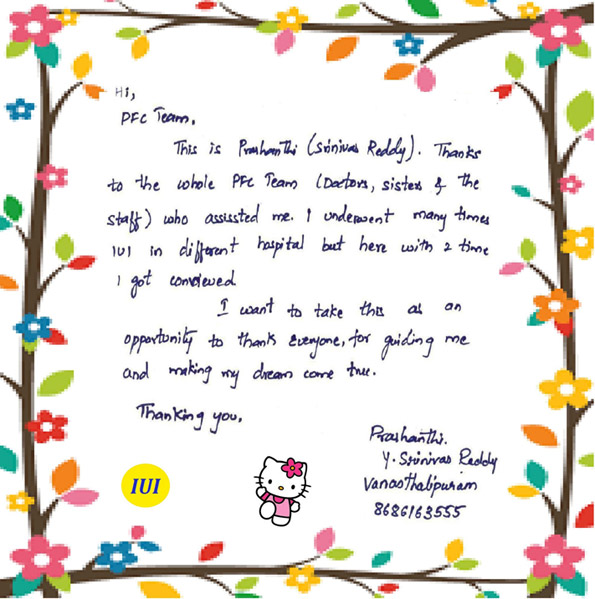 Hi,
PFC Team,
This is Prashanthi (Srinivas Reddy). Thanks
to the whole PFC Team (Doctors, sisters & the
staff) who assissted me. I underwent many times
IUI in different hospital but here with 2 time
I got concieved
I want to take this as an
opportunity to thank everyone, for guiding me
and making my dream come true.
Thanking you,
Prashanthi.
Y. Srinivas Reddy
Vanasthalipuram
8686163555
IUI